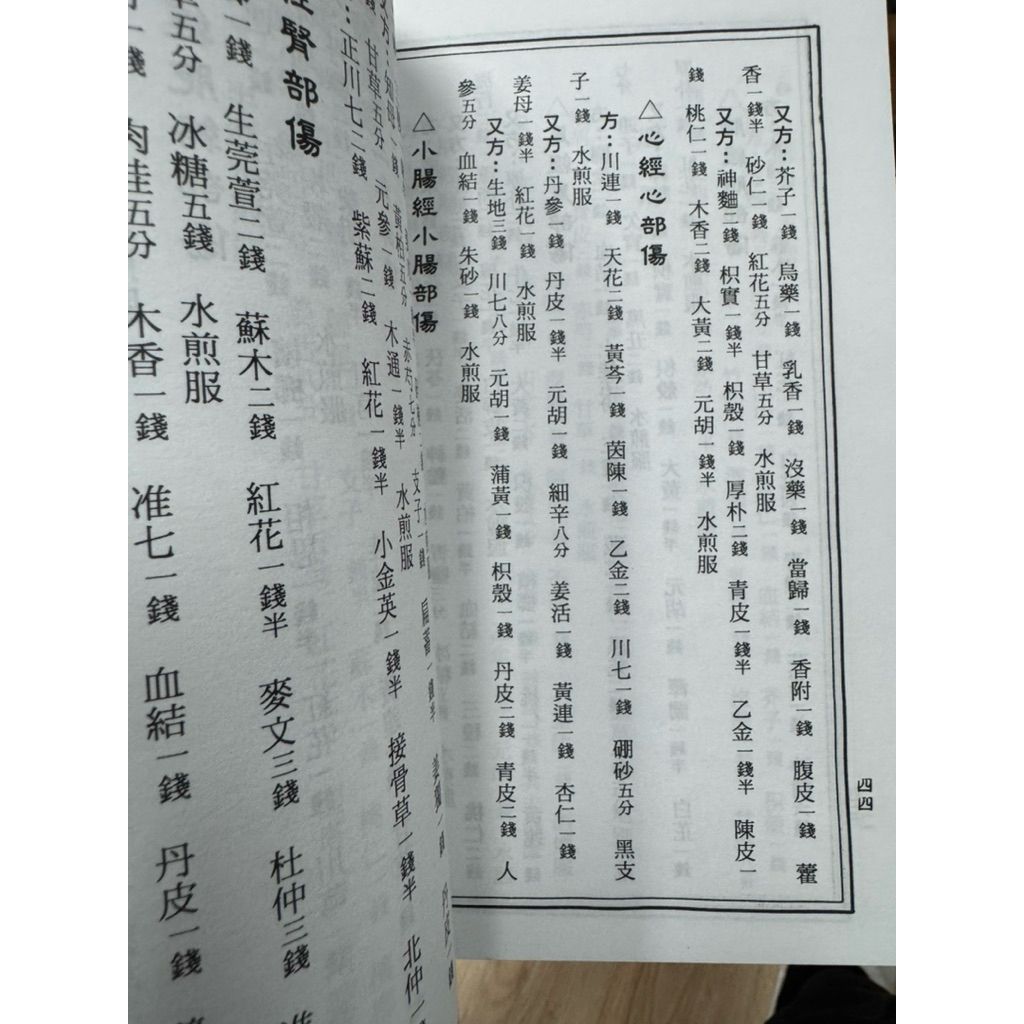 又方：芥子一錢　烏藥一錢　乳香一錢　沒藥一錢　當歸一錢　香附一錢　腹皮一錢　藿
香一錢半　砂仁一錢　紅花五分　甘草五分　水煎服
又方：神麯二錢　枳實一錢半　枳殼一錢　厚朴二錢　青皮一錢半　乙金一錢半　陳皮一
錢　桃仁一錢　木香二錢　大黃二錢　元胡一錢半　水煎服
△心經心部傷
方：川連一錢　天花二錢　黃芩一錢　茵陳一錢　乙金二錢　川七一錢　硼砂五分　黑支
子一錢　水煎服
又方：丹參一錢　丹皮一錢半　元胡一錢　細辛八分　姜活一錢　黃連一錢　杏仁一錢
姜母一錢半　紅花一錢　水煎服
又方：生地三錢　川七八分　元胡一錢　蒲黃一錢　枳殼一錢　丹皮二錢　青皮二錢　人
參五分　血結一錢　朱砂一錢　水煎服
△小腸經小腸部傷
四四
甘草五分　元參一錢　木通一錢半　水煎服
正川七二錢　紫蘇二錢　紅花一錢半　小金英一錢半　接骨草一錢半　北仲一
腎部傷
生莞萱二錢　蘇木二錢　紅花一錢半　麥文三錢　杜仲三錢
五分　冰糖五錢　水煎服
肉桂五分　木香一錢　准七一錢　血結一錢　丹皮一錢